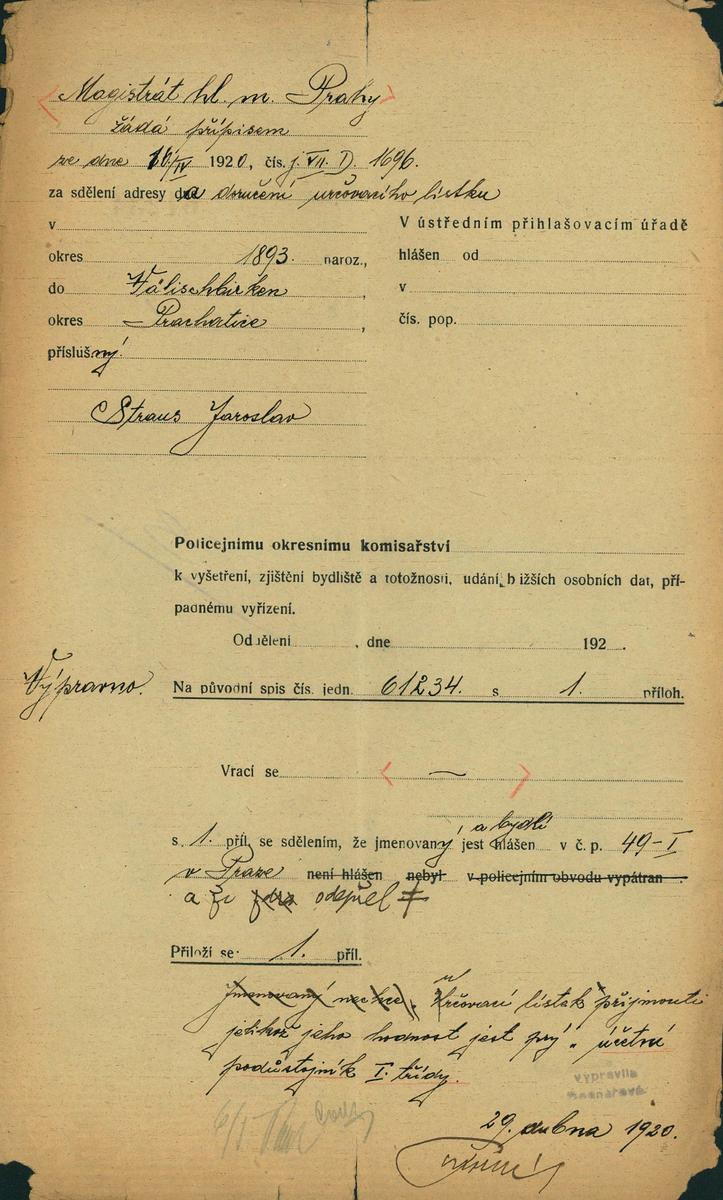 Magistrát hl. m. Prahy
žádá přípisem
ze dne 16/IV 1920, čís. j. VII. D. 1696.
za sdělení adresy da doručení určovacího lístku
v
okres 1893. naroz.,
do Wälischbirken,
okres Prachatice,
příslušný.
Straus Jaroslav
V ústředním přihlašovacím úřadě
hlášen od
v
čís. pop.
Policejnimu okresnímu komisařství
k vyšetření, zjištění bydliště a totožnosti, udání b ižších osobních dat, pří-
padnému vyřízení.
Od ělení , dne 192 .
Výpravno.
Na původní spis čís. jedn. 61234. s 1. příloh.
Vrací se —
a bydlí
s 1. příl. se sdělením, že jmenovaný jest hlášen v č. p. 49-I
v Praze není hlášen nebyl v policejním obvodu vypátrán .
a že odepřel
Přiloží se: 1. příl.
Jmenovaný nechce. určovací lístek přijmouti
jelikož jeho hodnost jest prý „ účetní
podůstojník I. třídy.
vypravila
29. dubna 1920.